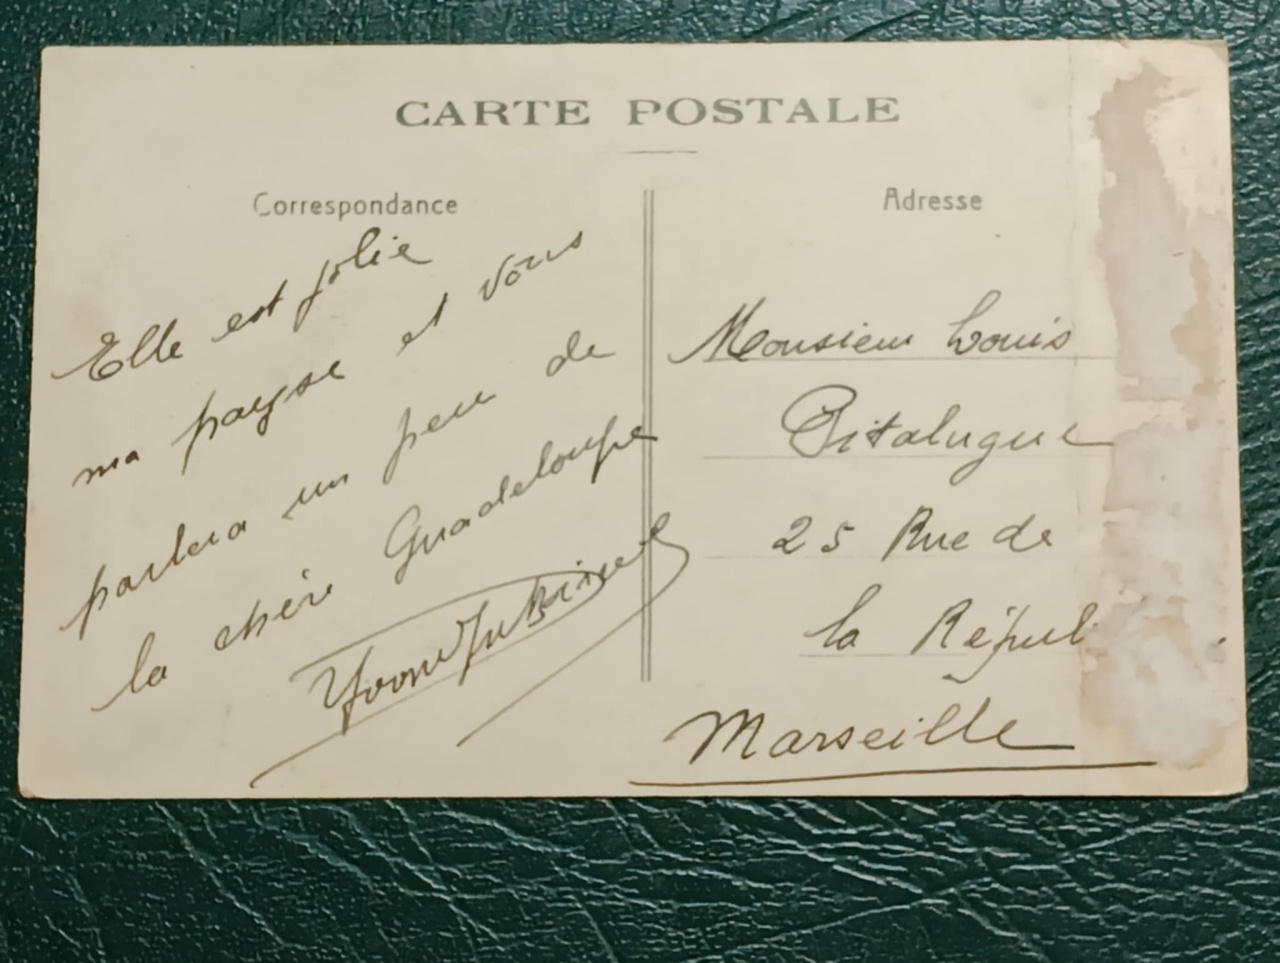 CARTE POSTALE
Correspondance
Elle est jolie
ma payse et vous
parlera un peu de
la chère Guadeloupe
Adresse
Monsieur Louis
Pitalugue
25 Rue de
la Républ
Marseille